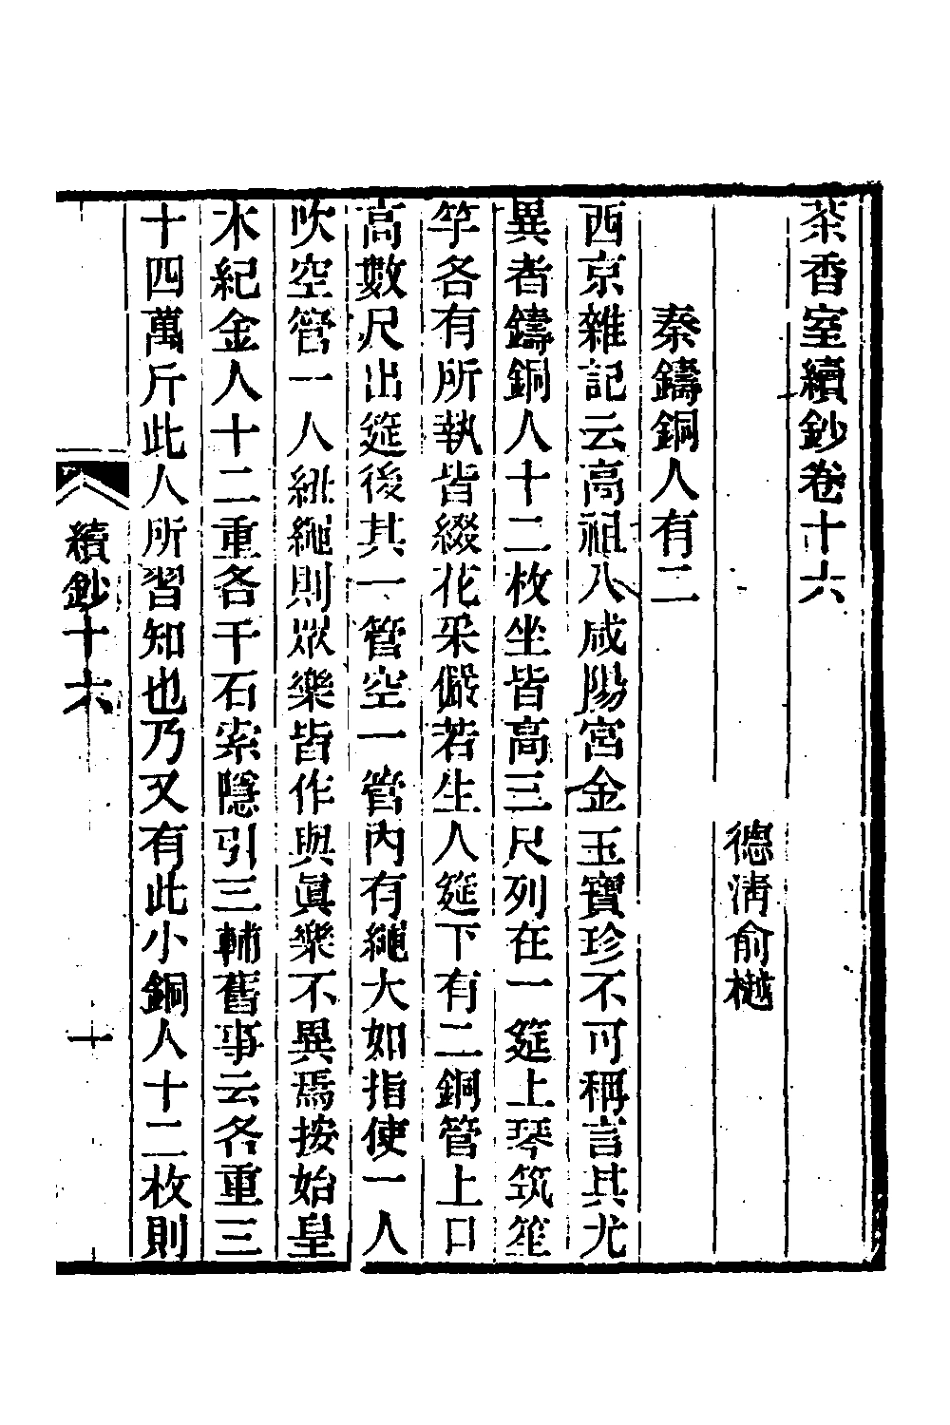 茶香室續鈔卷十六
德淸俞樾
秦鑄銅人有二
西京雜記云高祖入咸陽宮金玉寶珍不可稱言其尤
異者鑄銅人十二枚坐皆高三尺列在一筵上琴筑笙
竽各有所執皆綴花采儼若生人筵下有二銅管上口
高數尺出筵後其一管空一管內有繩大如指使一人
吹空管一人紐繩則眾樂皆作與眞樂不異焉按始皇
木紀金人十二重各千石索隱引三輔舊事云各重三
十四萬斤此人所習知也乃又有此小銅人十二枚則
續鈔十六
一